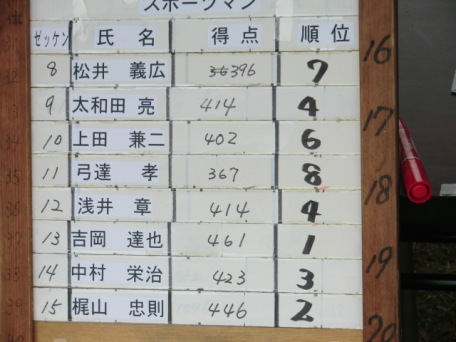 スポーツマン
ゼッケン 氏 名 得 点 順 位
8 松井 義広 396 7
9 太和田 亮 414 4
10 上田 兼二 402 6
11 弓達 孝 367 8
12 浅井 章 414 4
13 吉岡 達也 461 1
14 中村 栄治 423 3
15 梶山 忠則 446 2
16
17
18
19
20